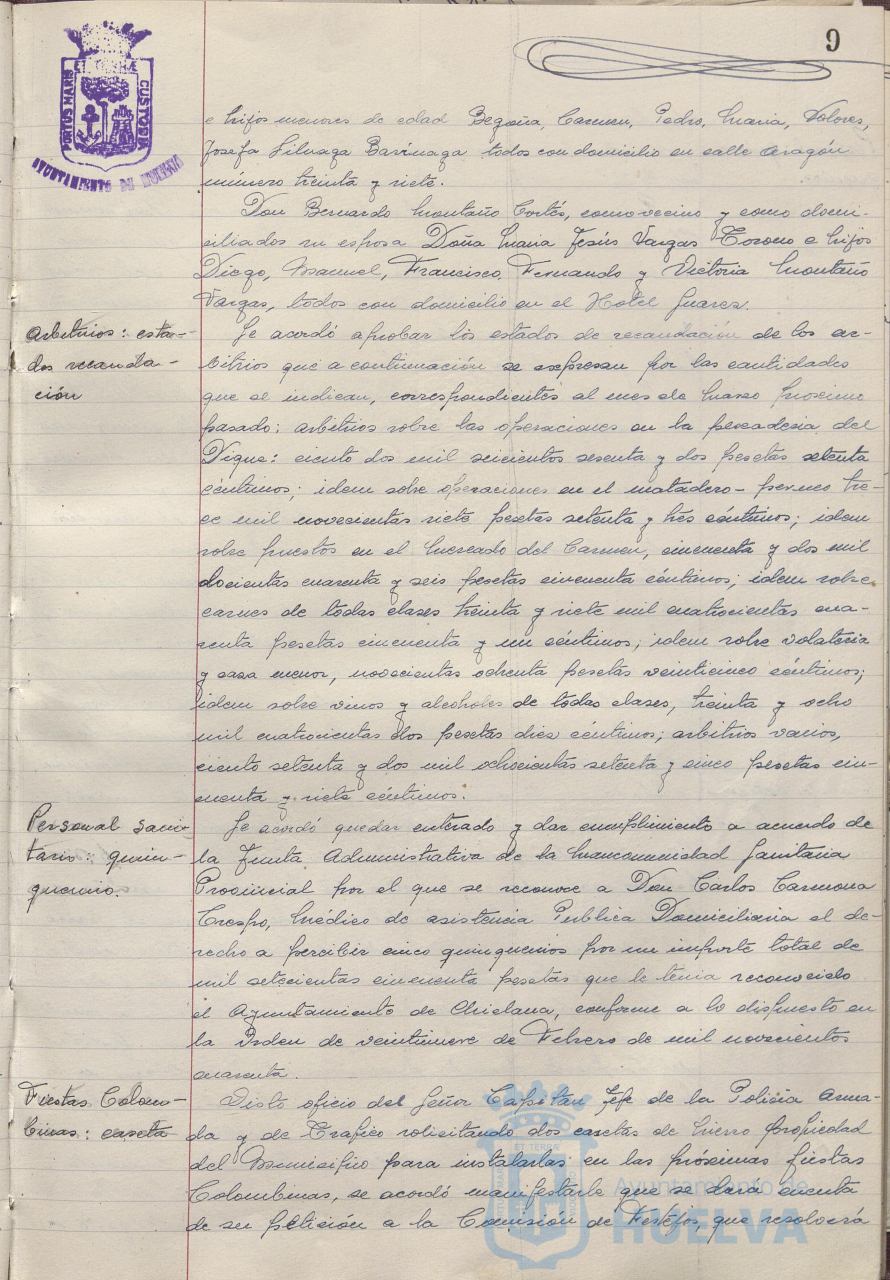 9
PORTUS MARIS ET TERRÆ CUSTODIA
AYUNTAMIENTO DE
e hijos menores de edad Begoña, Carmen, Pedro, Maria, Dolores,
Josefa Liluaga Barinaga todos con domicilio en calle Aragón
número treinta y siete.
Don Bernardo Montaño Cortés, como vecino y como domi-
ciliados su esposa Doña Maria Jesús Vargas e hijos
Diego, Manuel, Francisco, Fernando y Victoria Montaño
Vargas, todos con domicilio en el Hotel Suarez.
Arbitrios: esta-
dos recauda-
ción
Se acordó aprobar los estados de recaudación de los ar-
bitrios que a continuación se expresan por las cantidades
que se indican, correspondientes al mes de Marzo proximo
pasado: arbitrios sobre las operaciones en la pescaderia del
Dique: ciento dos mil seicientos sesenta y dos pesetas setenta
céntimos; idem sobre operaciones en el matadero- tre-
ce mil novecientas siete pesetas setenta y tres céntimos; idem
sobre puestos en el Mercado del Carmen, cincuenta y dos mil
docientas cuarenta y seis pesetas cincuenta céntimos; idem sobre
carnes de todas clases treinta y siete mil cuatrocientas cua-
renta pesetas cincuenta y un céntimos; idem sobre volateria
y casa menor, novecientas ochenta pesetas veinticinco céntimos;
idem sobre vinos y alcoholes de todas clases, treinta y ocho
mil cuatrocientas dos pesetas diez céntimos; arbitrios varios,
ciento setenta y dos mil ochocientas setenta y cinco pesetas cin-
cuenta y siete céntimos.
Personal sani-
tario: quin-
quenio.
Se acordó quedar enterado y dar cumplimiento a acuerdo de
la Junta Administrativa de la Mancomunidad Sanitaria
Provincial por el que se reconoce a Don Carlos Carmona
Crespo, Médico de asistencia Publica Domiciliaria el de-
recho a percibir cinco quinquenios por un importe total de
mil setecientas cincuenta pesetas que le tenia reconocido
el Ayuntamiento de Chiclana, conforme a lo dispuesto en
la Orden de veintinueve de Febrero de mil novecientos
cuarenta.
Fiestas Colom-
binas: caseta
Visto oficio del Señor Capitan Jefe de la Policia Arma-
da y de Trafico solicitando dos casetas de hierro propiedad
del Municipio para instalarlas en las próximas fiestas
Colombinas, se acordó manifestarle que se dará cuenta
de su petición a la Comisión de Festejos, que resolverá
Ayuntamiento de
HUELVA